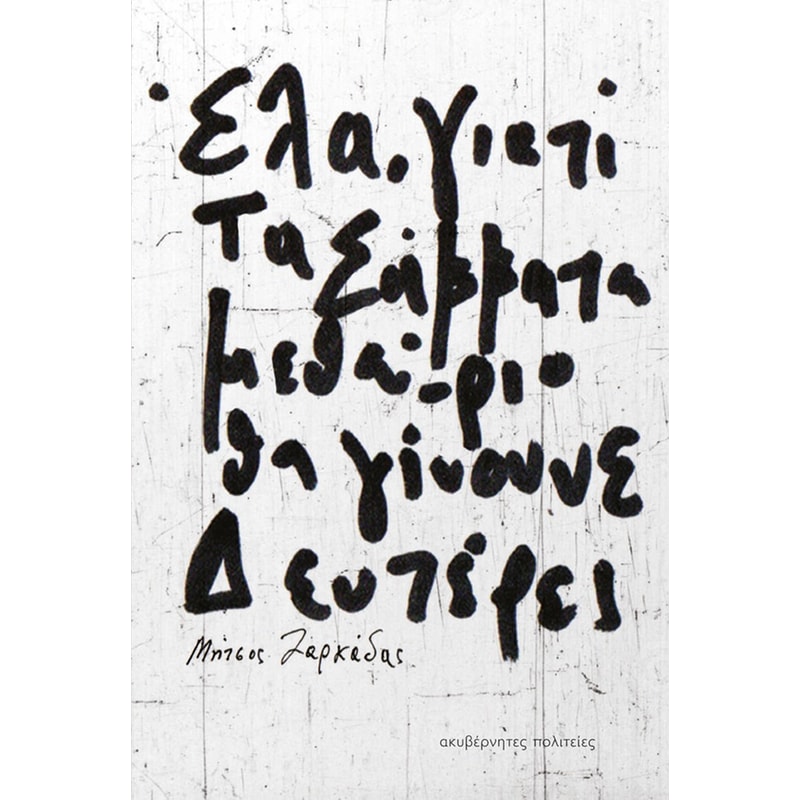 Έλα, γιατί
τα Σάββατα
μεθαύ-ριο
θα γίνουνε
Δευτέρες
Μήτσος Ζαρκάδας
ακυβέρνητες πολιτείες